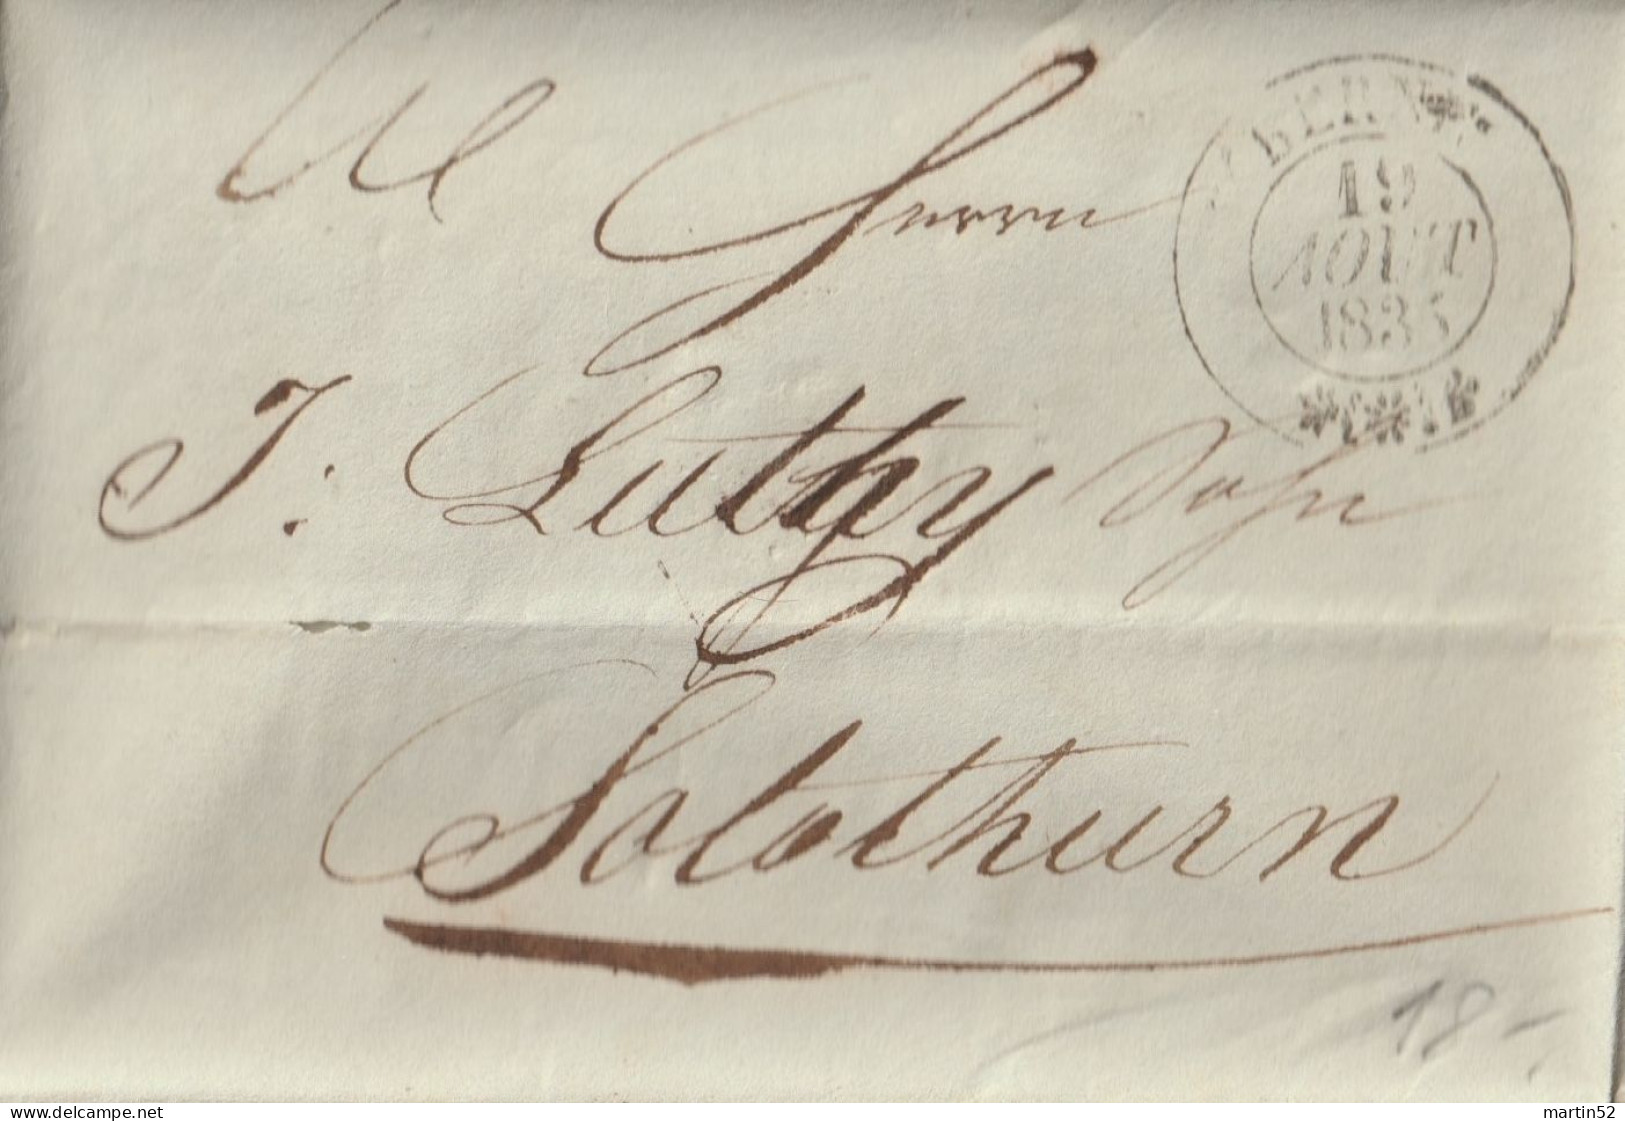 Herrn
J: Luthy Sohn
Solothurn
BERN
19
AOUT
1835
18-
www.delcampe.net
martin52